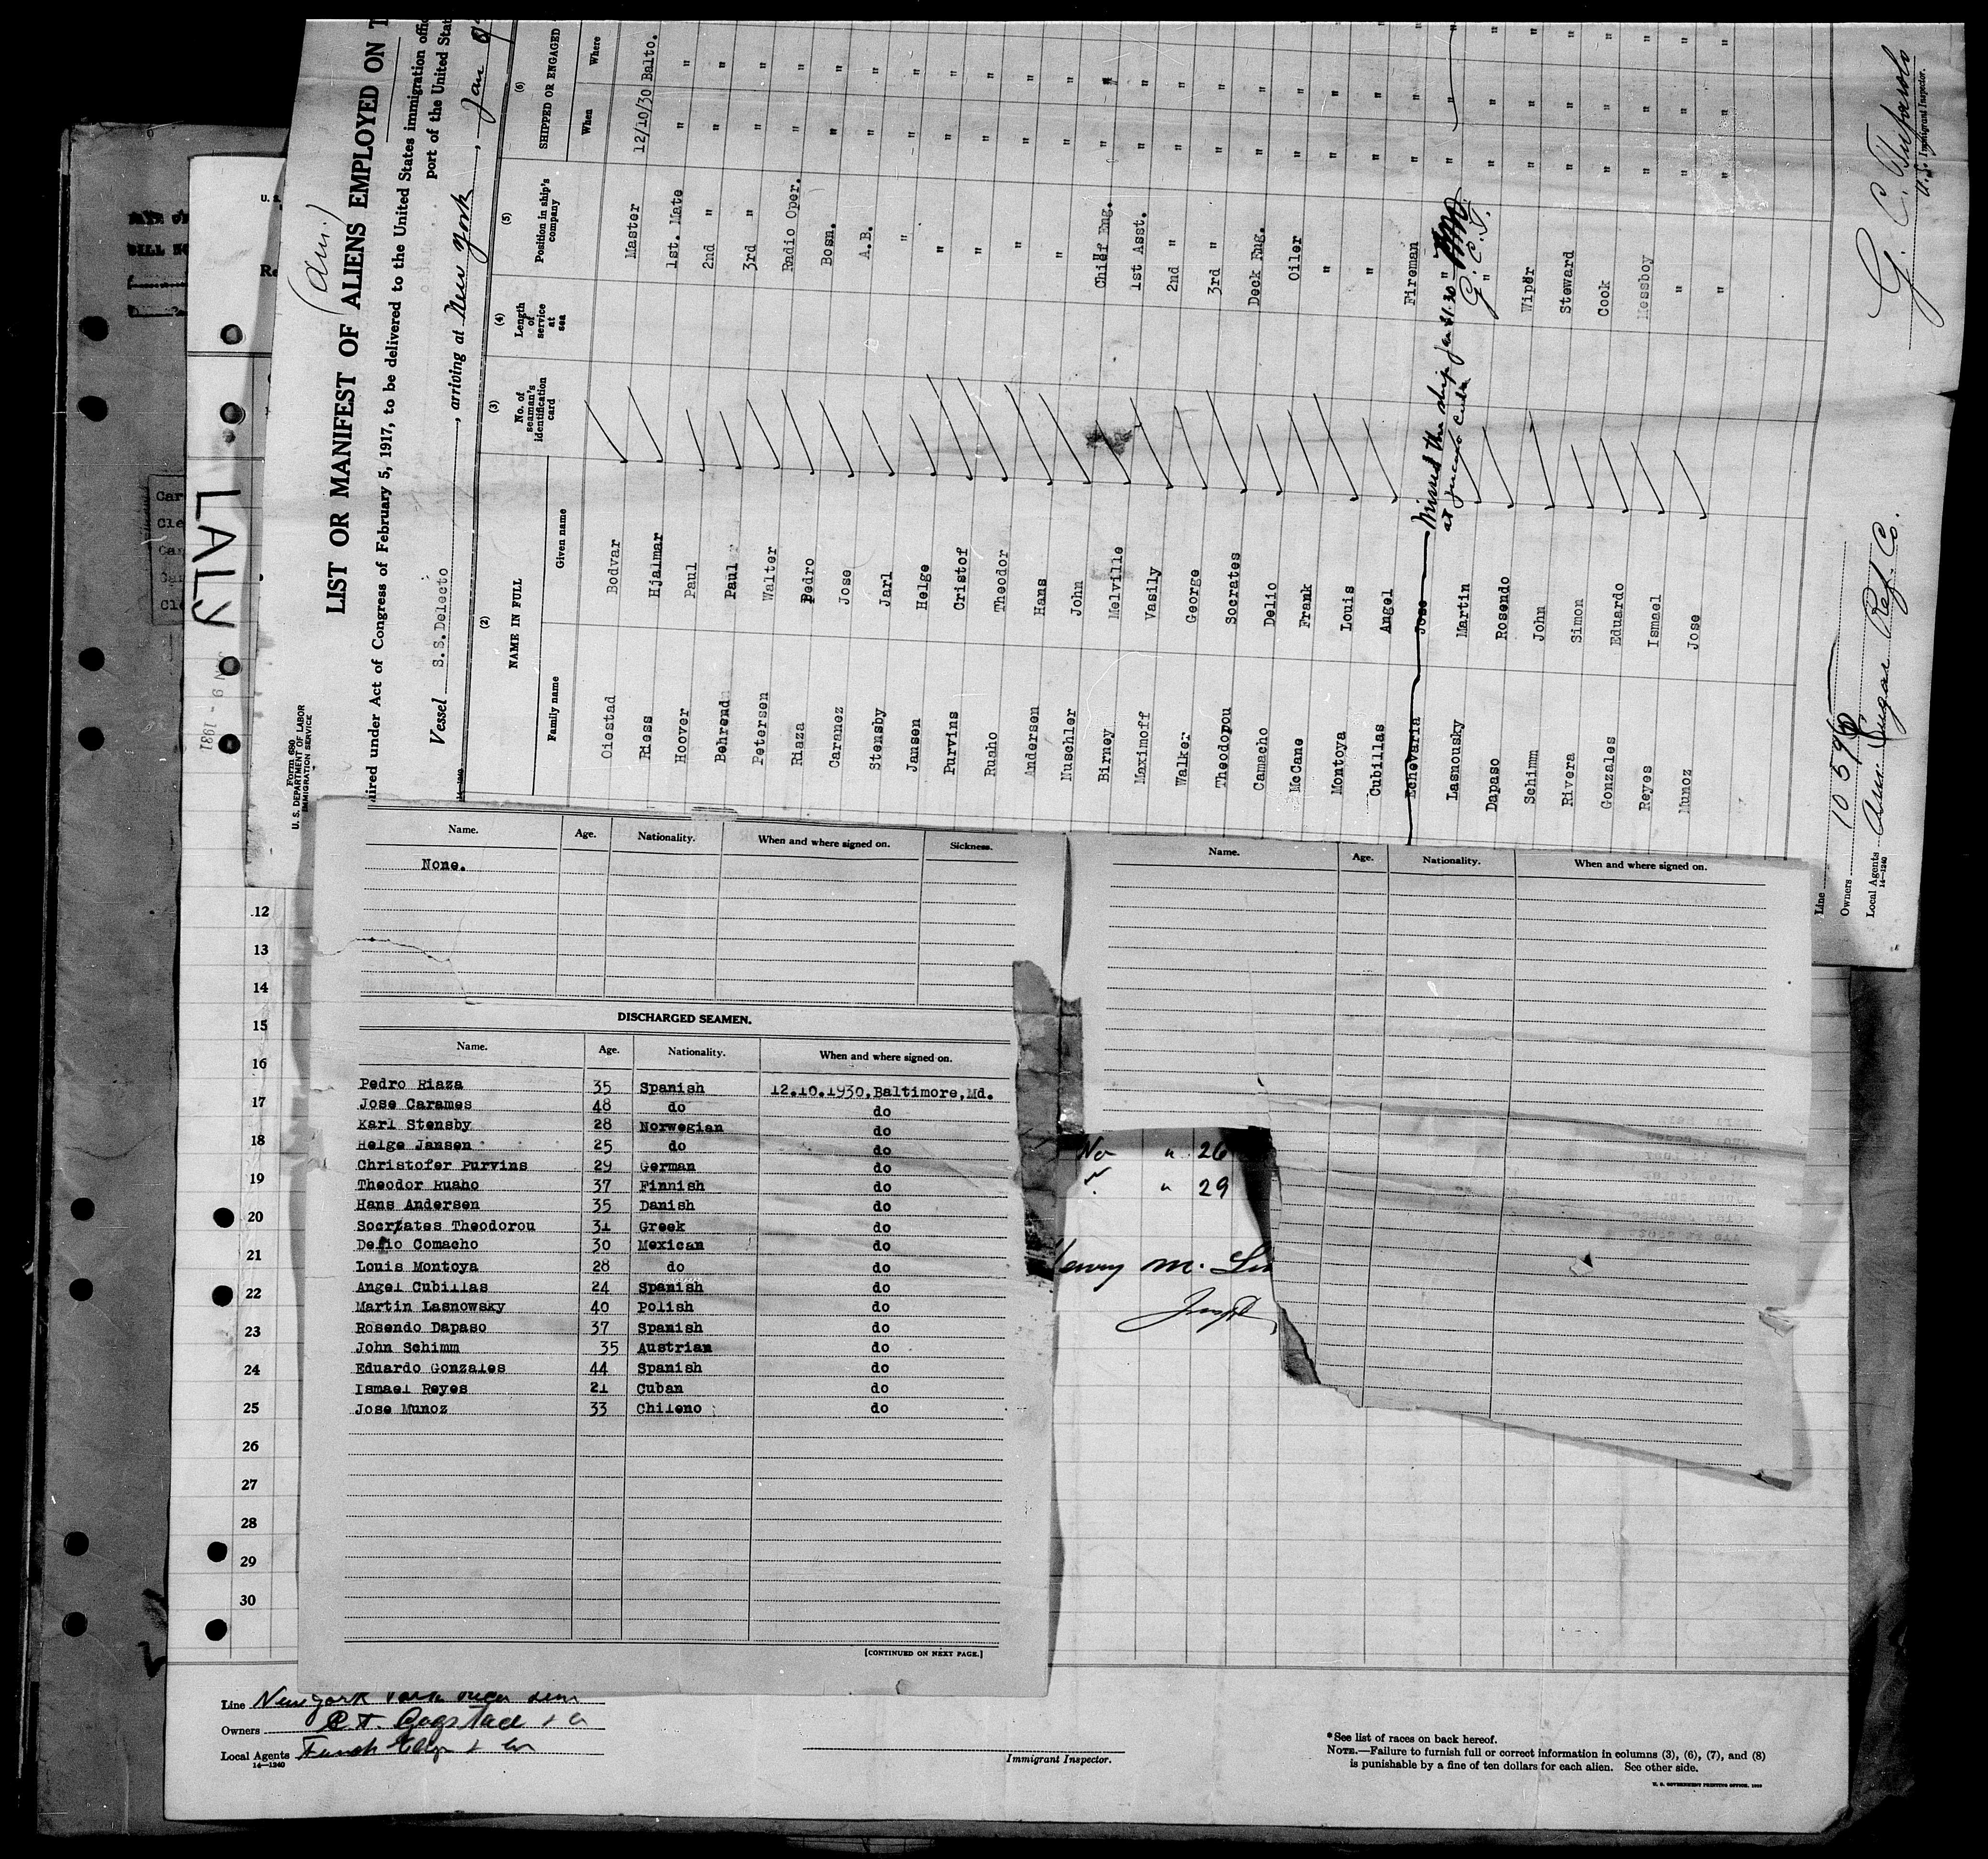 (Am.)
LIST OR MANIFEST OF ALIENS EMPLOYED ON T
uired under Act of Congress of February 5, 1917, to be delivered to the United States immigration offic
port of the United Stat
Form 680
U. S. DEPARTMENT OF LABOR
IMMIGRATION SERVICE
Vessel S.S. Delecto, arriving at New York, Jan 9
(2) (3) (4) (5) (6)
NAME IN FULL No. of seaman's identification card Length of service at sea Position in ship's company SHIPPED OR ENGAGED
Family name Given name When Where
Oiestad Bodvar Master 12/10/30 Balto.
Riess Hjalmar 1st. Mate " "
Hoover Paul 2nd " " "
Behrend Paul 3rd " " "
Petersen Walter Radio Oper. " "
Riaza Pedro Bosn. " "
Caramez Jose A.B. " "
Stensby Jarl " " "
Jansen Helge " " "
Purvins Cristof " " "
Ruaho Theodor " " "
Andersen Hans " " "
Muschler John Chief Eng. " "
Birney Melville 1st Asst. " "
Maximoff Vasily 2nd " " "
Walker George 3rd " " "
Theodopou Socrates Deck Eng. " "
Camacho Delio Oiler " "
McCane Frank " " "
Montoya Louis " " "
Cubillas Angel Fireman " "
Echevaria Jose Missed the ship Jan 31.30 "
at Cuba G.C.T.
Lasnousky Martin " " "
Dapaso Rosendo Wiper " "
Schimm John Steward " "
Rivera Simon Cook " "
Gonzales Eduardo Messboy " "
Reyes Ismael " " "
Munoz Jose " " "
Line
Owners
Local Agents Am. Sugar Ref. Co.
14—1240
U.S. Immigrant Inspector.
LALY
JAN 9 - 1931
Name. Age. Nationality. When and where signed on. Sickness.
None.
DISCHARGED SEAMEN.
Name. Age. Nationality. When and where signed on.
Pedro Riaza 35 Spanish 12.10.1930,Baltimore,Md.
Jose Carames 48 do do
Karl Stensby 28 Norwegian do
Helge Jansen 25 do do
Christofer Purvins 29 German do
Theodor Ruaho 37 Finnish do
Hans Andersen 35 Danish do
Socrates Theodorou 31 Greek do
Delio Comacho 30 Mexican do
Louis Montoya 28 do do
Angel Cubillas 24 Spanish do
Martin Lasnowsky 40 Polish do
Rosendo Dapaso 37 Spanish do
John Schimm 35 Austrian do
Eduardo Gonzales 44 Spanish do
Ismael Reyes 21 Cuban do
Jose Munoz 33 Chileno do
[CONTINUED ON NEXT PAGE.]
Name. Age. Nationality. When and where signed on.
No " 26
" 29
Henry M.
12
13
14
15
16
17
18
19
20
21
22
23
24
25
26
27
28
29
30
Line New York
Owners
Local Agents
14—1240
Immigrant Inspector.
*See list of races on back hereof.
NOTE.—Failure to furnish full or correct information in columns (3), (6), (7), and (8)
is punishable by a fine of ten dollars for each alien. See other side.